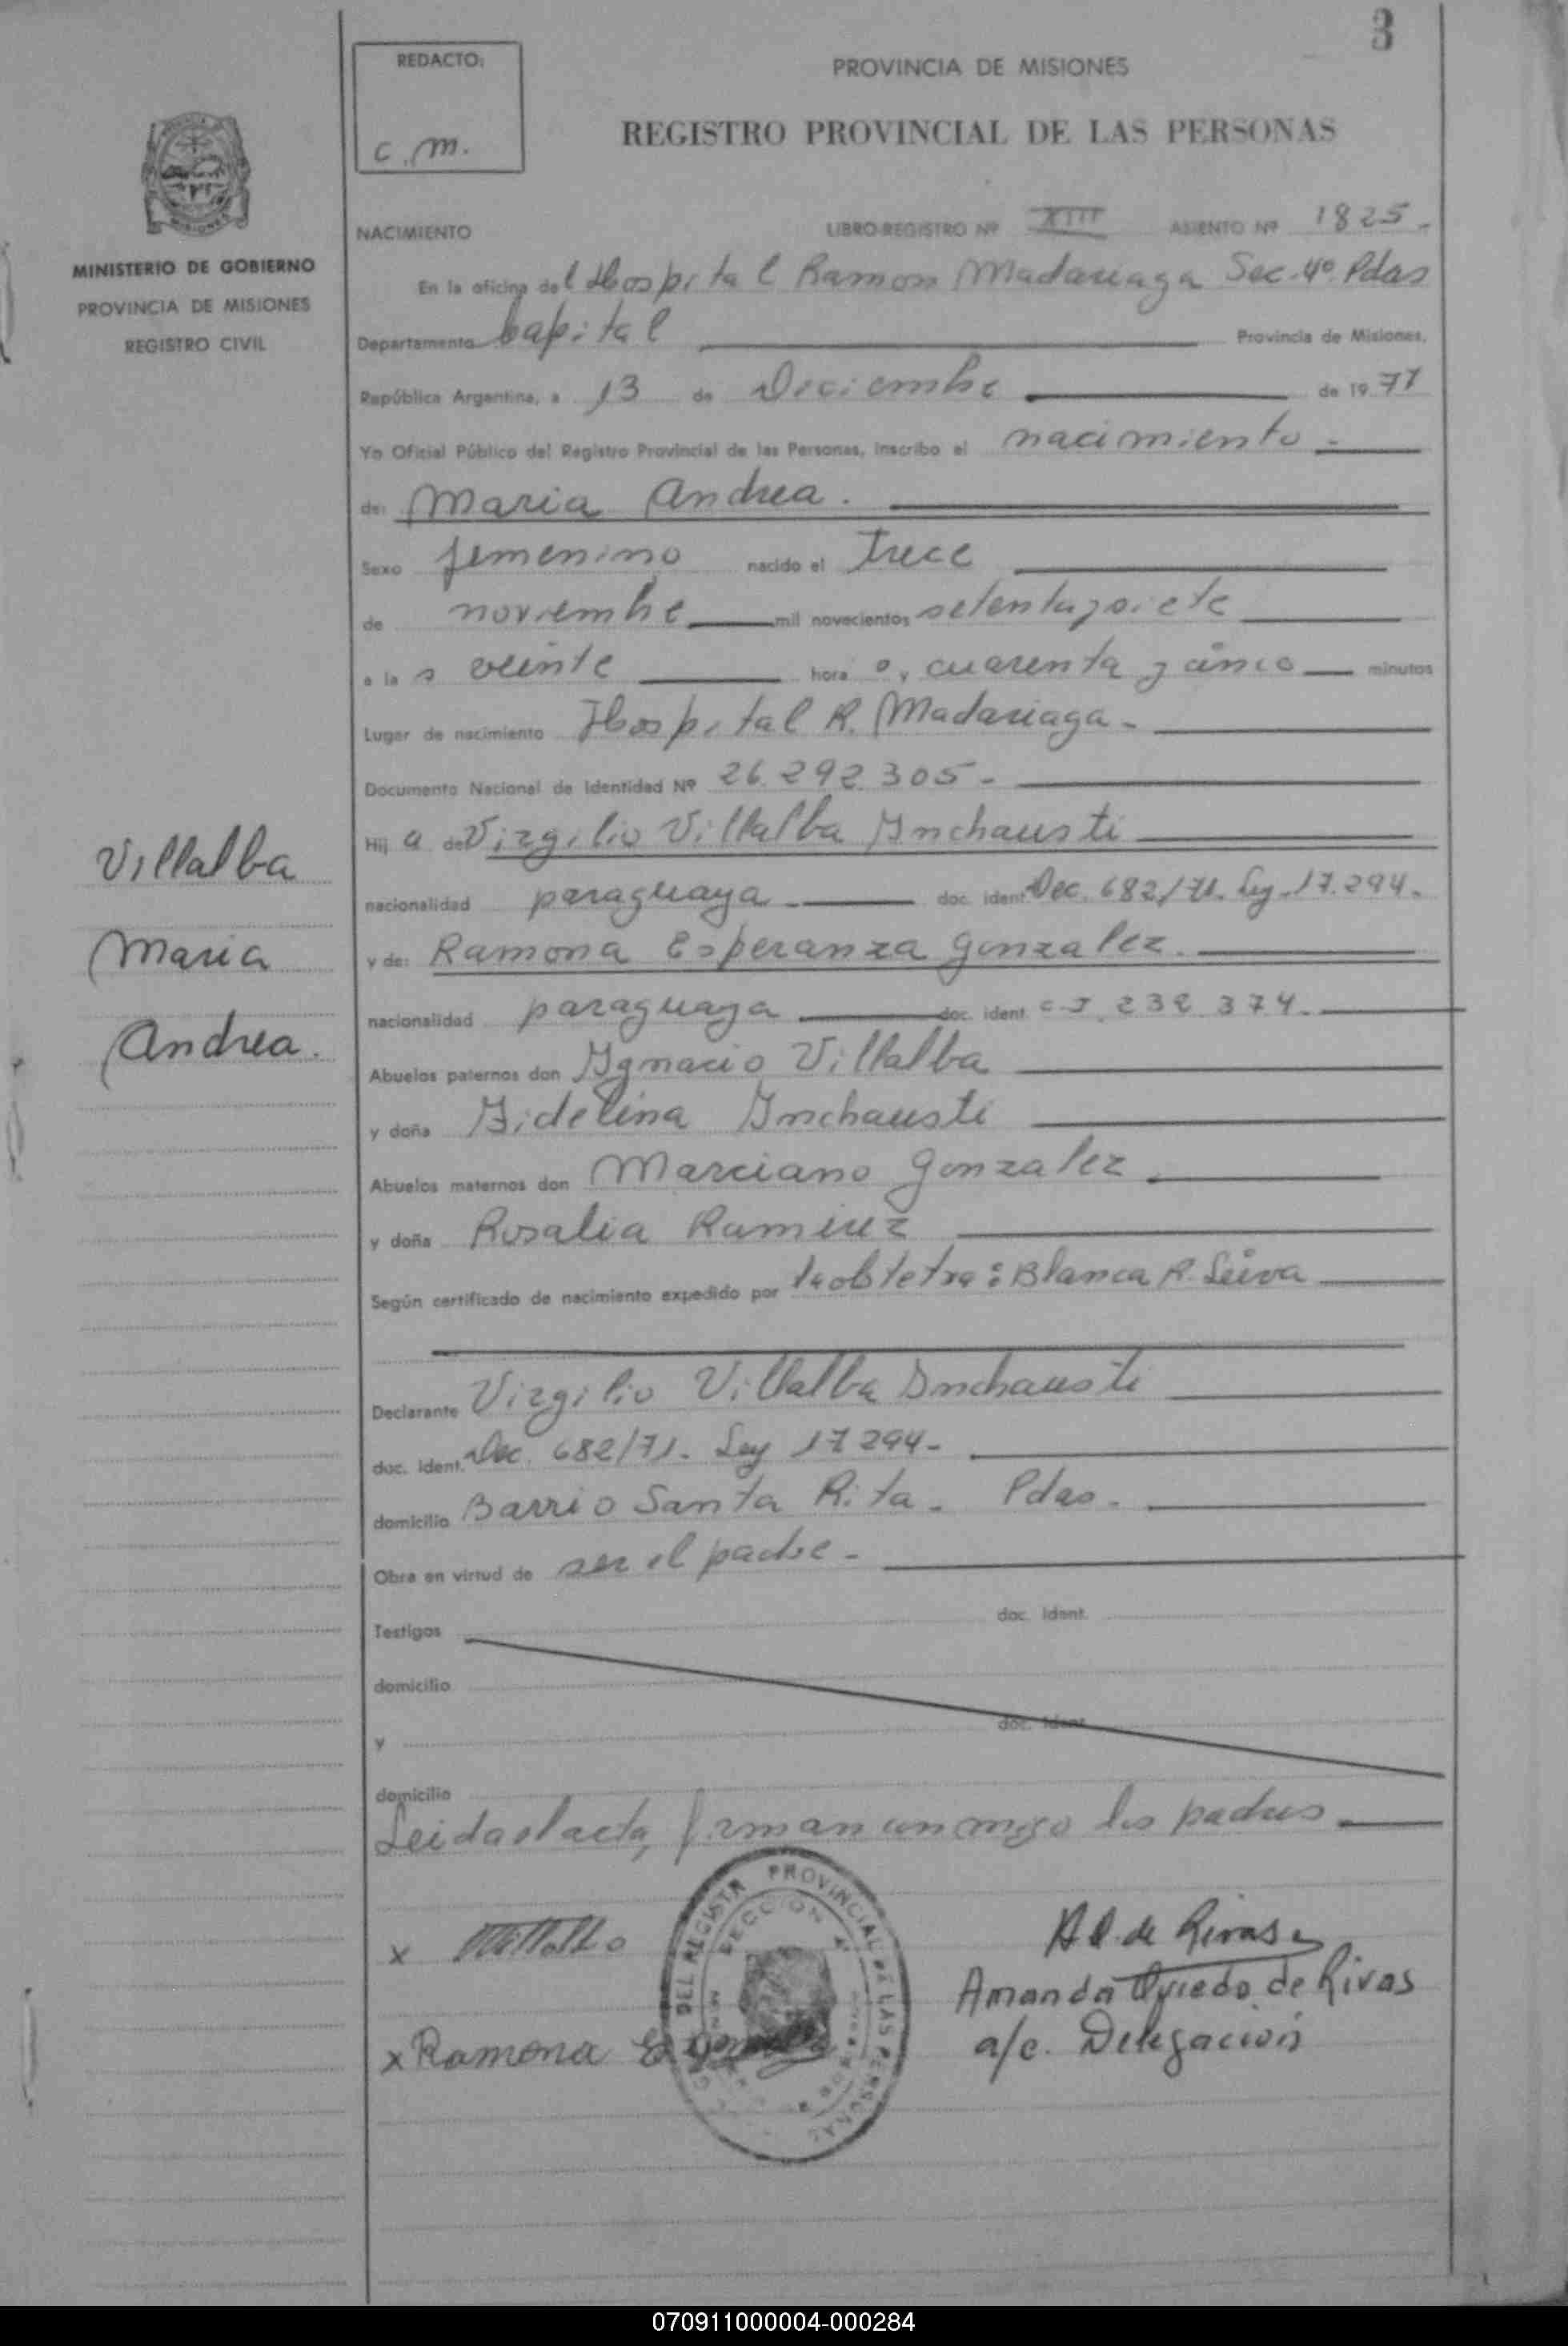 3
REDACTO:
C.M.
PROVINCIA DE MISIONES
REGISTRO PROVINCIAL DE LAS PERSONAS
MINISTERIO DE GOBIERNO
PROVINCIA DE MISIONES
REGISTRO CIVIL
NACIMIENTO LIBRO-REGISTRO Nº XIII ASIENTO Nº 1825-
En la oficina del Hospital Ramon Madariaga Sec. 4º. Pdas
Departamento Capital Provincia de Misiones,
República Argentina, a 13 de Diciembre de 1977
Yo Oficial Público del Registro Provincial de las Personas, inscribo el nacimiento-
de: Maria Andrea.
Sexo femenino nacido el trece
de noviembre mil novecientos setentaysiete
a la s veinte hora s y cuarenta y cinco minutos
Lugar de nacimiento Hospital R. Madariaga-
Documento Nacional de Identidad Nº 26.292.305-
Hij a de Virgilio Villalba Inchausti
nacionalidad paraguaya- doc. ident. Dec. 682/71. Ley. 17.294.
y de: Ramona Esperanza Gonzalez.
nacionalidad paraguaya doc. ident. C.I. 232.374.
Abuelos paternos don Ignacio Villalba
y doña Fidelina Inchausti
Abuelos maternos don Marciano Gonzalez.
y doña Rosalia Ramirez
Según certificado de nacimiento expedido por la obtetra: Blanca R. Leiva
Declarante Virgilio Villalba Inchausti
doc. ident. Dec. 682/71. Ley 17294-
domicilio Barrio Santa Rita. Pdas.
Obra en virtud de ser el padre-
Testigos doc. ident.
domicilio
y doc. ident.
domicilio
Leida el acta, firman conmigo los padres
Villalba
Maria
Andrea.
x
x Ramona E
DEL REGISTR PROVINCIAL DE LAS PERSONAS
SECCION 4ª
A.O. de Rivas
Amanda Oviedo de Rivas
a/c. Delegación
070911000004-000284